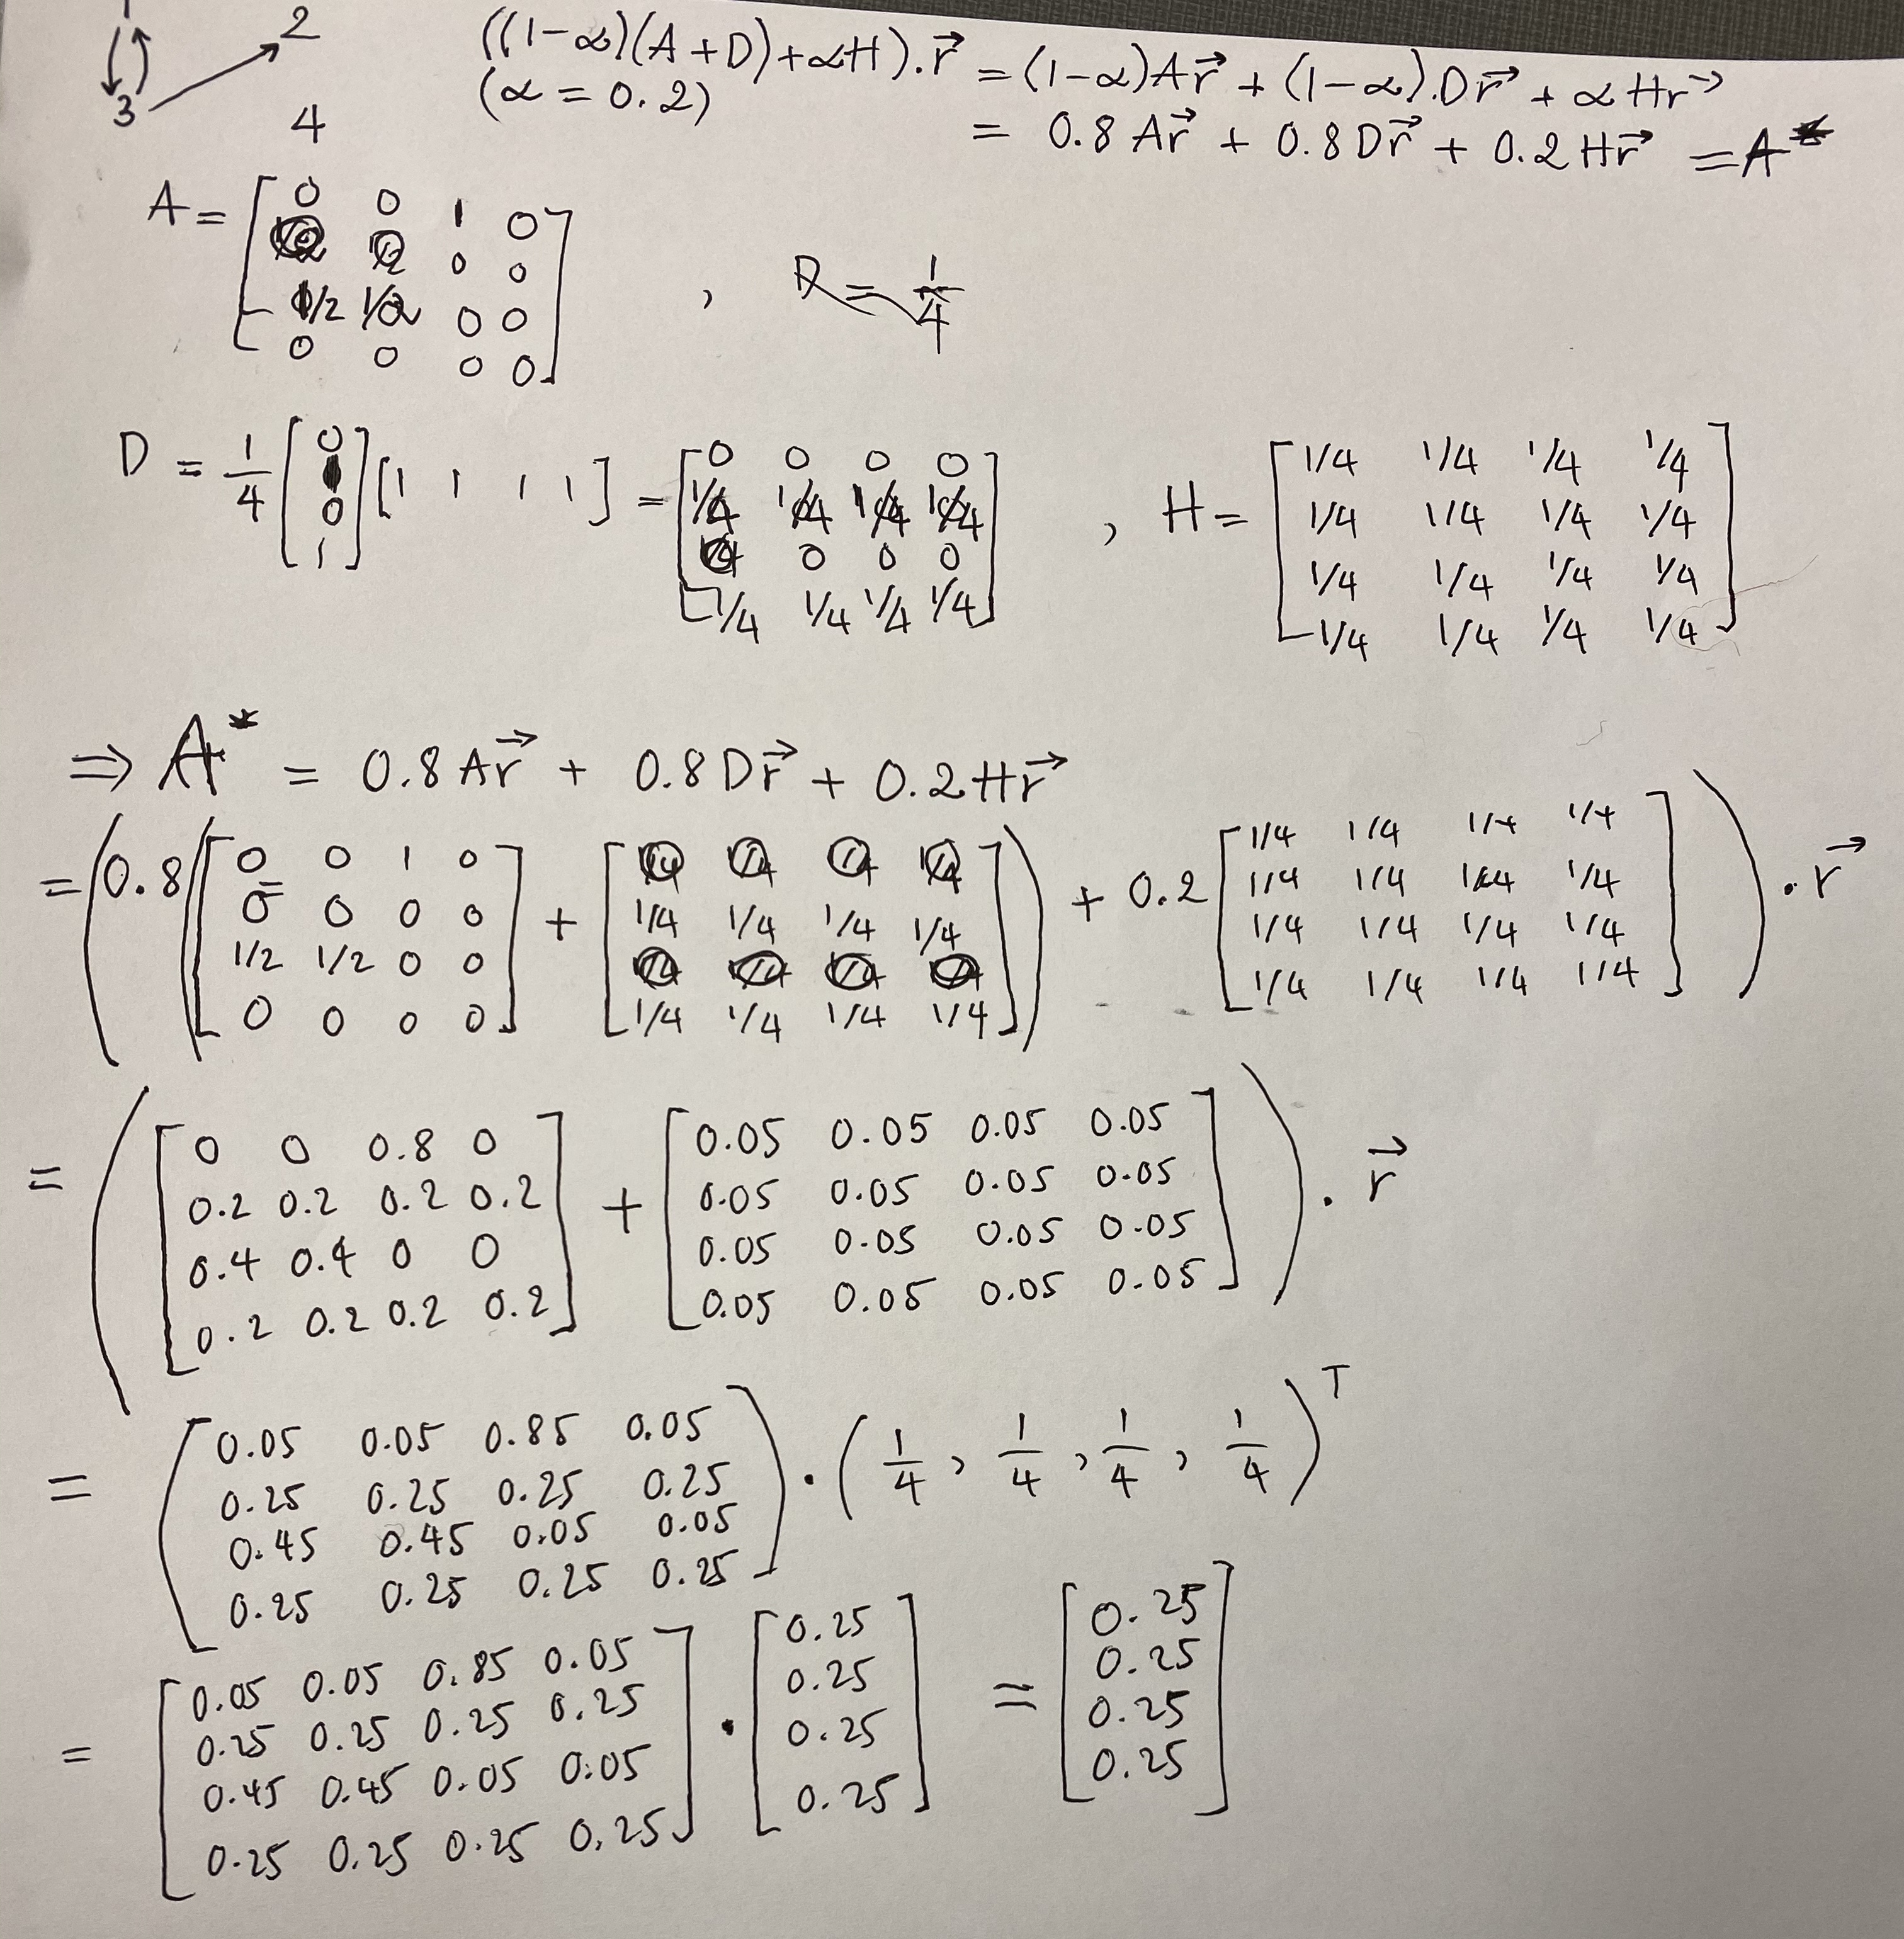 1
2
3
4
((1-α)(A+D)+αH).r⃗ = (1-α)Ar⃗ + (1-α).Dr⃗ + αHr⃗
(α = 0.2)
= 0.8 Ar⃗ + 0.8 Dr⃗ + 0.2 Hr⃗ = A*
A = [ 0 0 1 0
0 0
1/2 1/2 0 0
0 0 0 0 ]
,
D = 1/4 [ 0 1 0 1 ] [ 1 1 1 1 ] = [ 0 0 0 0
1/4 1/4 1/4 1/4
0 0 0
1/4 1/4 1/4 1/4 ]
, H = [ 1/4 1/4 1/4 1/4
1/4 1/4 1/4 1/4
1/4 1/4 1/4 1/4
1/4 1/4 1/4 1/4 ]
⇒ A* = 0.8 Ar⃗ + 0.8 Dr⃗ + 0.2 Hr⃗
= ( 0.8 ( [ 0 0 1 0
0 0 0 0
1/2 1/2 0 0
0 0 0 0 ]
+ [ 0 0 0 0
1/4 1/4 1/4 1/4
0 0 0 0
1/4 1/4 1/4 1/4 ] )
+ 0.2 [ 1/4 1/4 1/4 1/4
1/4 1/4 1/4 1/4
1/4 1/4 1/4 1/4
1/4 1/4 1/4 1/4 ] ) . r⃗
= ( [ 0 0 0.8 0
0.2 0.2 0.2 0.2
0.4 0.4 0 0
0.2 0.2 0.2 0.2 ]
+ [ 0.05 0.05 0.05 0.05
0.05 0.05 0.05 0.05
0.05 0.05 0.05 0.05
0.05 0.05 0.05 0.05 ] ) . r⃗
= ( 0.05 0.05 0.85 0.05
0.25 0.25 0.25 0.25
0.45 0.45 0.05 0.05
0.25 0.25 0.25 0.25 ) . ( 1/4 , 1/4 , 1/4 , 1/4 )ᵀ
= [ 0.05 0.05 0.85 0.05
0.25 0.25 0.25 0.25
0.45 0.45 0.05 0.05
0.25 0.25 0.25 0.25 ]
. [ 0.25
0.25
0.25
0.25 ]
= [ 0.25
0.25
0.25
0.25 ]